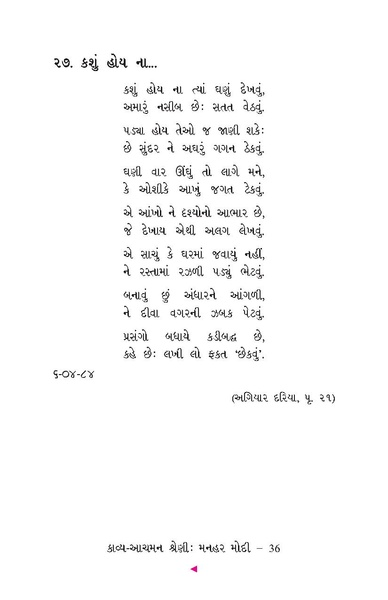 ૨૭. કશું હોય ના...
કશું હોય ના ત્યાં ઘણું દેખવું,
અમારું નસીબ છેઃ સતત વેઠવું.
પડ્યા હોય તેઓ જ જાણી શકેઃ
છે સુંદર ને અઘરું ગગન ઠેકવું.
ઘણી વાર ઊંઘું તો લાગે મને,
કે ઓશીકે આખું જગત ટેકવું.
એ આંખો ને દૃશ્યોનો આભાર છે,
જે દેખાય એથી અલગ લેખવું.
એ સાચું કે ઘરમાં જવાયું નહીં,
ને રસ્તામાં રઝળી પડ્યું ભેટવું.
બનાવું છું અંધારને આંગળી,
ને દીવા વગરની ઝબક પેટવું.
પ્રસંગો બધાયે કડીબદ્ધ છે,
કહે છેઃ લખી લો ફકત ‘છેકવું’.
૬-૦૪-૮૪
(અગિયાર દરિયા, પૃ. ૨૧)
કાવ્ય-આચમન શ્રેણીઃ મનહર મોદી – 36